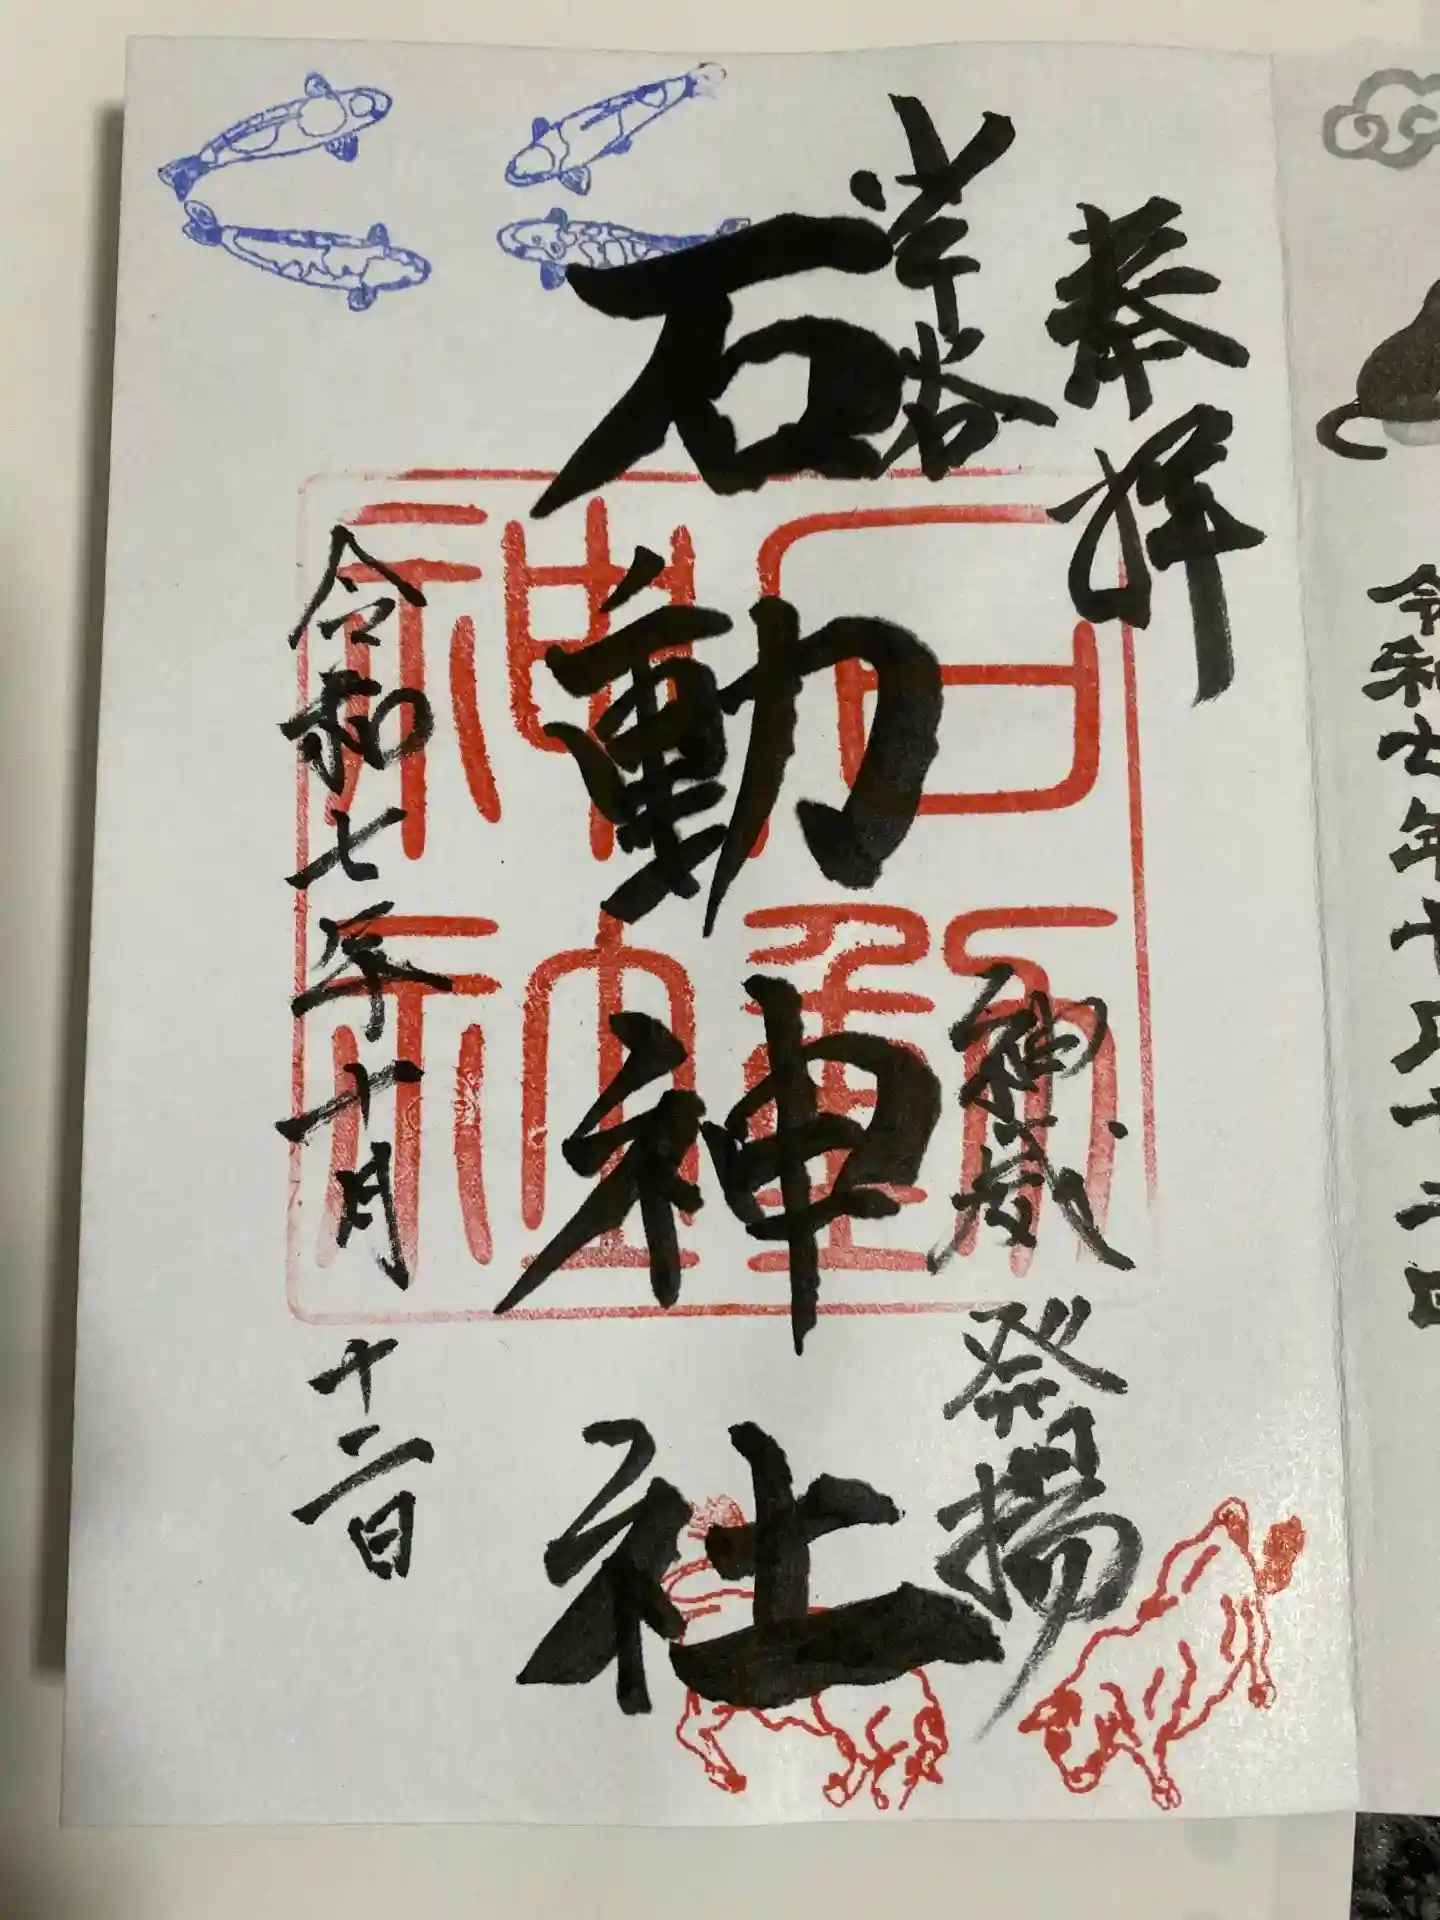 奉拝
小千谷
石動神社
神威發揚
令和七年十月十二日
石動
神社
令和七年十月十二日